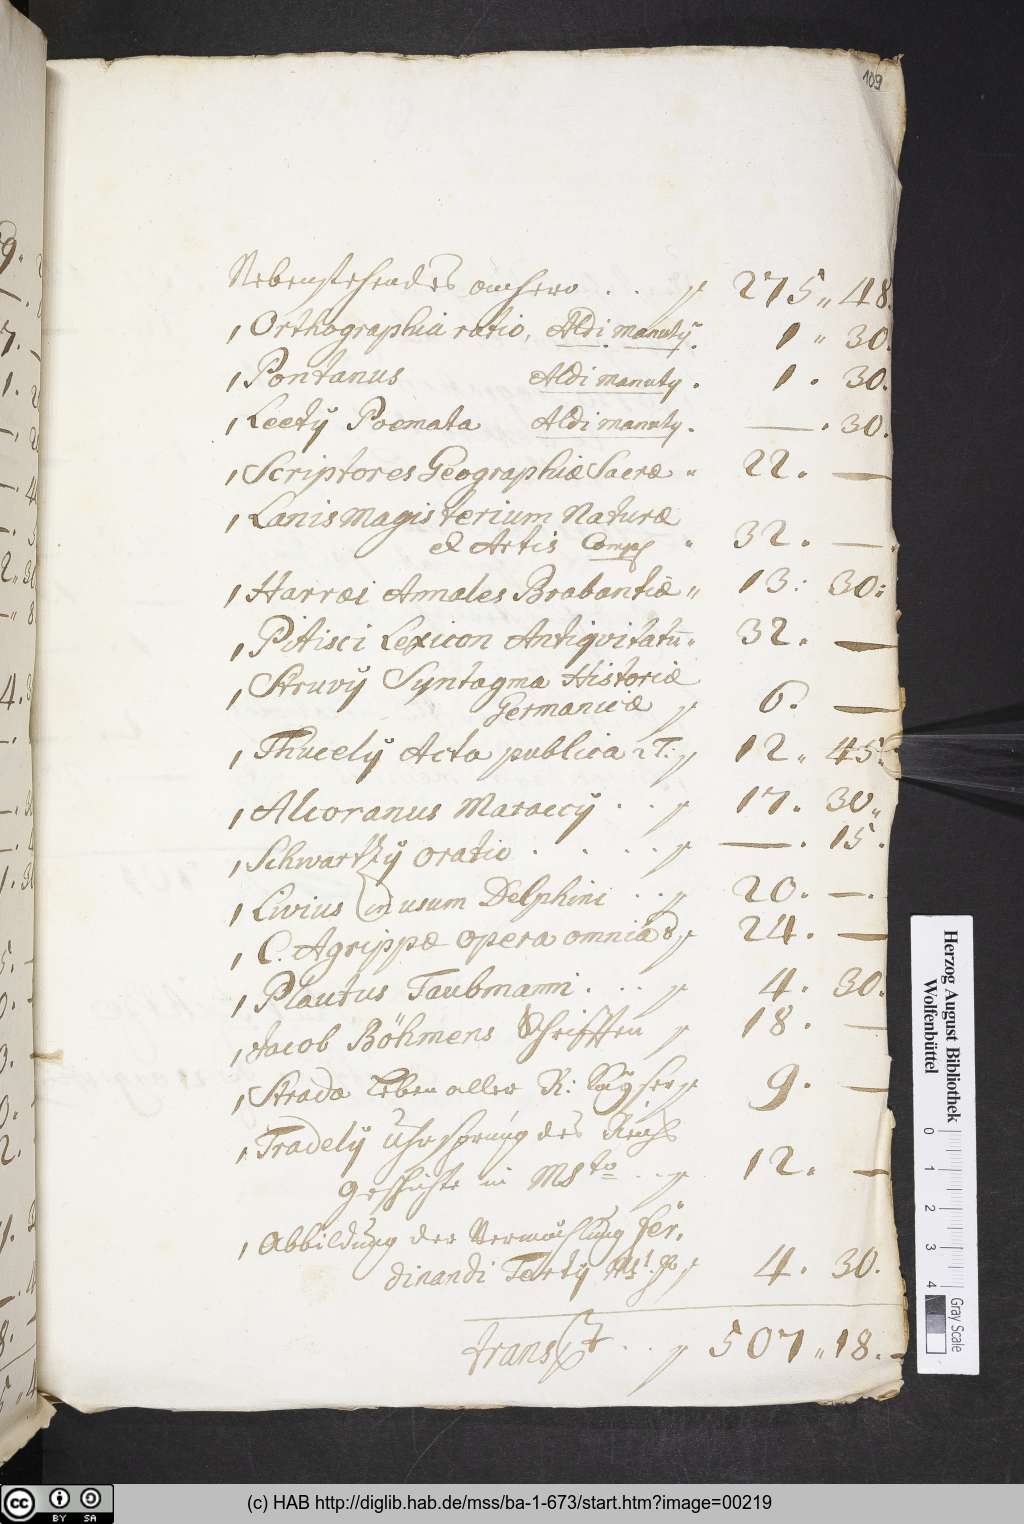 109
Nebenstehendes anhero . . 275 „ 48.
1 Orthographia ratio, Aldi manutÿ. 1 „ 30.
1 Pontanus Aldi manuty . 1 . 30.
1 Leetÿ Poemata Aldi manuty . — . 30.
1 Scriptores Geographiæ Sacræ „ 22. —
1 Lanis Magisterium Naturæ
et Artis Comp „ 32. —
1 Harræi Annales Brabantiæ „ 13: 30:
1 Pitisci Lexicon Antiqvitatū „ 32. —
1 Struvÿ Syntagma Historiæ
Germanicæ 6. —
1 Thucelÿ Acta publica 2 T: 12 „ 45.
1 Alcoranus Maraccÿ . . 17. 30„
1 Schwartzÿ oratio . . . . — . 15.
1 Livius in usum Delphini . . 20. —.
1 C. Agrippæ opera omnia 8 24. —
1 Plautus Taubmanni . . . 4. 30.
1 Jacob Böhmens Schrifften 18. —
1 Strada Leben aller R: Kaÿser 9. —
1 Tradelÿ Uhrsprung des Reichs
Geschichte in MSto . . 12. —
1 Abbildung der Vermählung Fer.
dinandi Tertÿ 4. 30.
transpt . . 507 „ 18.
Herzog August Bibliothek
Wolfenbüttel
0 1 2 3 4
Gray Scale
CC BY SA
(c) HAB http://diglib.hab.de/mss/ba-1-673/start.htm?image=00219